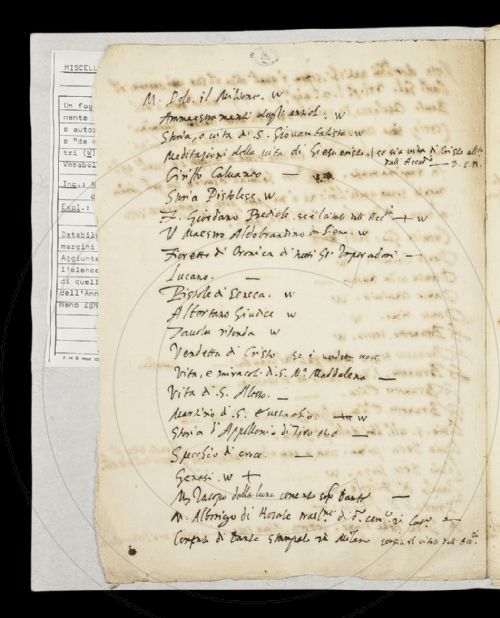 MISCELL
Un fog
nente
e auto
e "da
tri (W)
Vocabol
Inc.: M
Expl.:
Databil
margini
Aggiunte
l'elenco
di quell
dell'Ann
mano ign
M. Polo. il Milione. w
Ammaestramenti degli antichi. w
Storia, o vita di S. Giovambatista. w
Meditazioni della vita di Giesu cristo. (se sia vita di Cristo
dell'Accad.
Ciriffo Calvaneo —
Storia Pistolese w
F. Giordano Prediche. se è l'istesso dell' Acc. + w
V Maestro Aldobrandino da Siena. w
Fioretto di Cronica di tutti gl' Imperadori —
Lucano. —
Pistole di Seneca. w
Albertano Giudice w
Tavola ritonda w
Vendetta di Cristo se è
Vita, e miracoli di S. M.ª Maddalena —
Vita di S. Alesso. —
Martirio di S. Eustachio. w
Storia d'Appollonio di Tiro —
Specchio di croce. —
Genesi. w +
M. Iacopo della Lana coment. sop. Dante —
M. Alberigo di Rosate
Coment. di Dante stampato in Milano